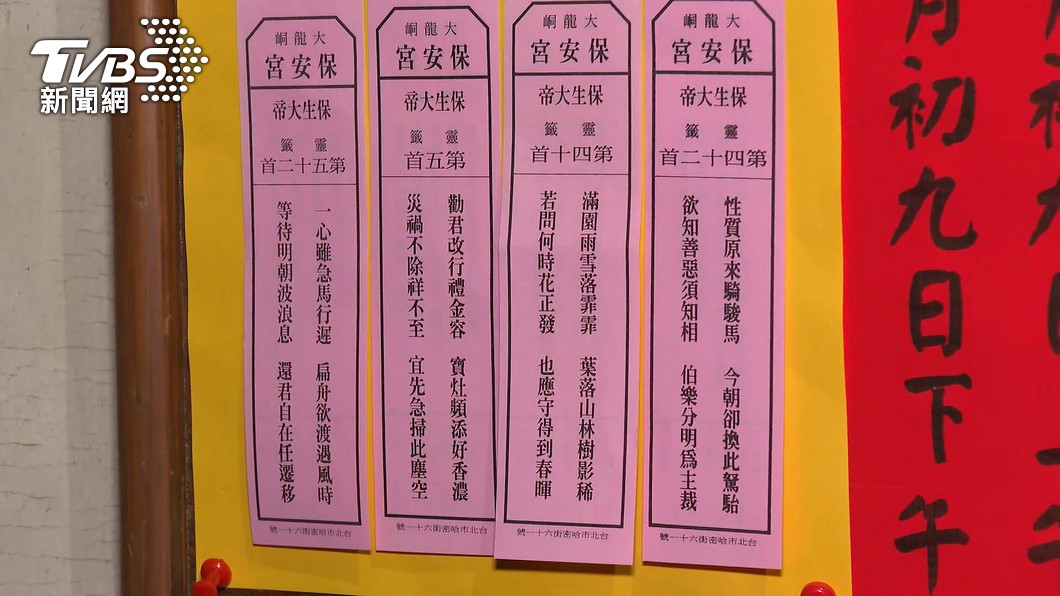 TVBS
新聞網
大龍峒
保安宮
保生大帝
靈籤
第五十二首
一心雖急馬行遲 扁舟欲渡遇風時
等待明朝波浪息 還君自在任遷移
台北市哈密街六十一號
大龍峒
保安宮
保生大帝
靈籤
第五首
勸君改行禮金容 寶灶頻添好香濃
災禍不除祥不至 宜先急掃此塵空
台北市哈密街六十一號
大龍峒
保安宮
保生大帝
靈籤
第四十首
滿園雨雪落霏霏 葉落山林樹影稀
若問何時花正發 也應守得到春暉
台北市哈密街六十一號
大龍峒
保安宮
保生大帝
靈籤
第四十二首
性質原來騎駿馬 今朝卻換此駑駘
欲知善惡須知相 伯樂分明為主裁
台北市哈密街六十一號
月初九日下午